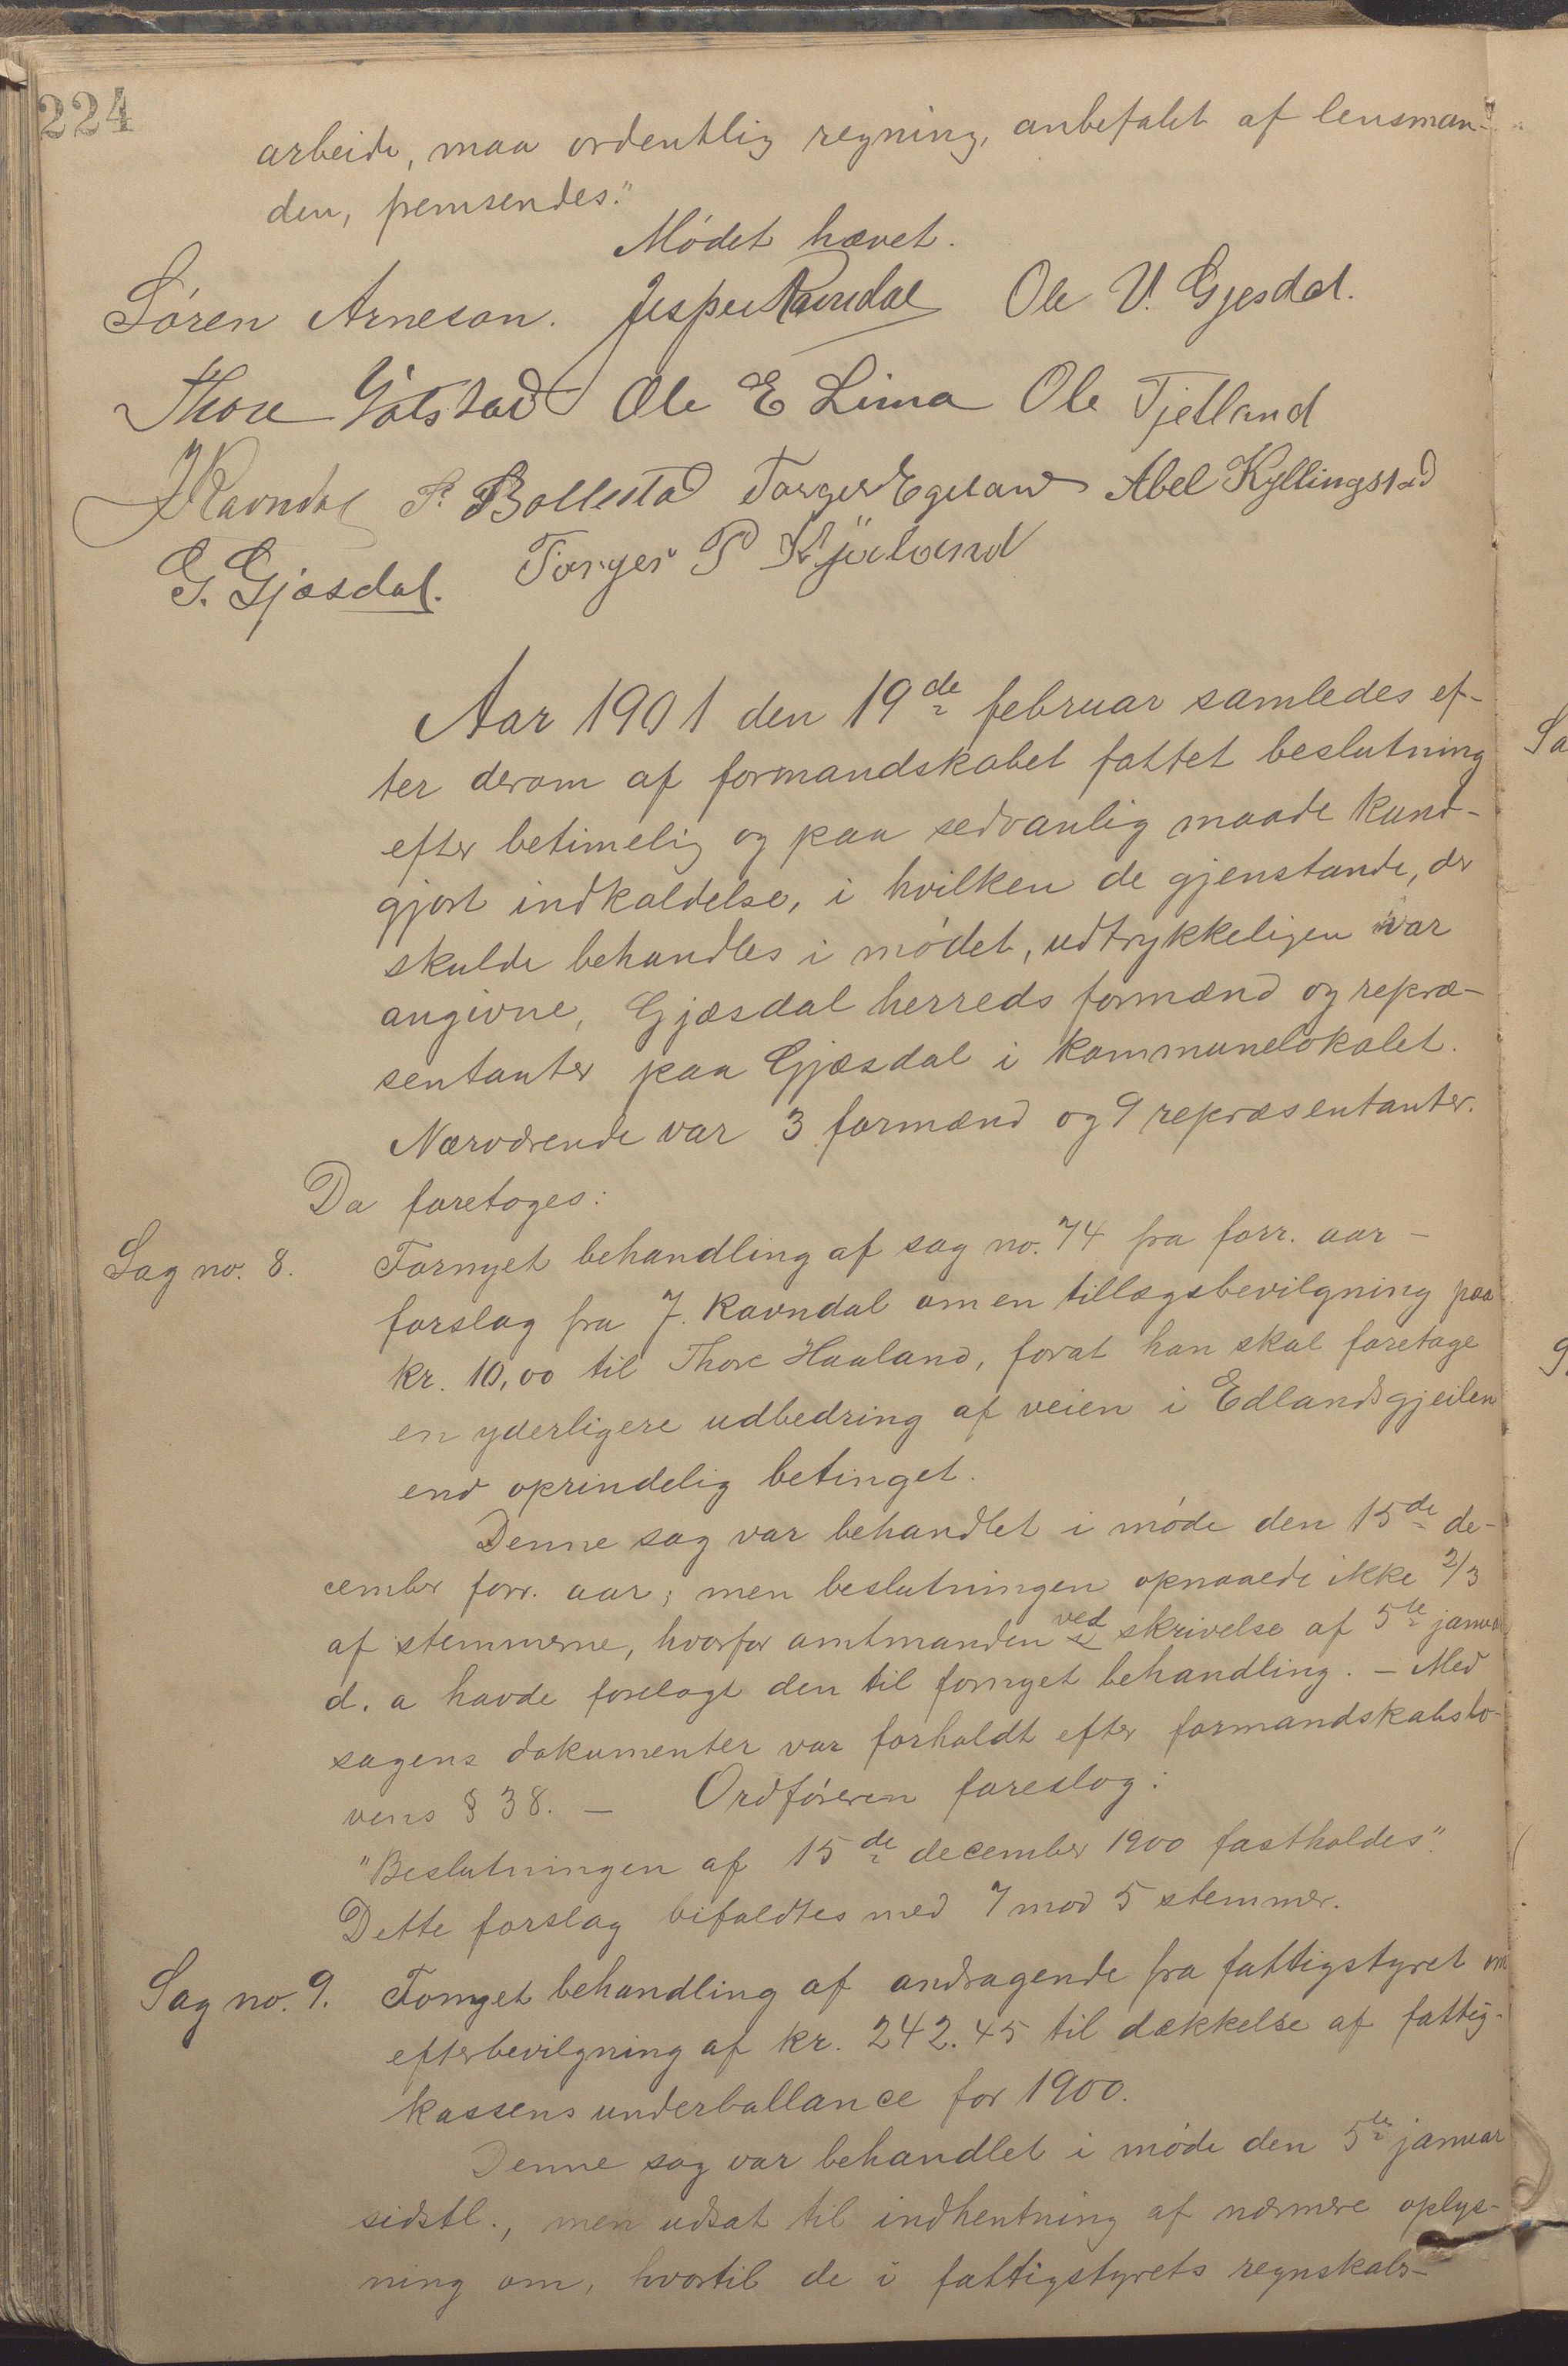 224
arbeide, maa ordentlig regning, anbefalet af lensman-
den, fremsendes."
Mødet hævet.
Søren Arneson. Jesper Ravndal Ole V. Gjesdal.
Thore Ole E Lima Ole Tjetland
J Ravndal P. Bollestad Torger Egeland Abel Kyllingstad
G. Gjæsdal. Torger P Kjøland
Aar 1901 den 19de februar samledes ef-
ter derom af formandskabet fattet beslutning
efter betimelig og paa sedvanlig maade kund-
gjort indkaldelse, i hvilken de gjenstande, der
skulde behandles i mødet, udtrykkeligen var
angivne, Gjæsdal herreds formænd og repræ-
sentanter paa Gjæsdal i kommunelokalet.
Nærværende var 3 formænd og 9 repræsentanter.
Da foretoges:
Sag no. 8. Fornyet behandling af sag no. 74 fra forr. aar -
forslag fra J. Ravndal om en tillægsbevilgning paa
kr. 10,00 til Thore Haaland, forat han skal foretage
en yderligere udbedring af veien i Edlandsgjeilen
end oprindelig betinget.
Denne sag var behandlet i møde den 15de de-
cember forr. aar; men beslutningen opnaaede ikke 2/3
af stemmerne, hvorfor amtmanden ved skrivelse af 5te januar
d. a havde forelagt den til fornyet behandling. - Med
sagens dokumenter var forholdt efter formandskabslo-
vens § 38. - Ordføreren foreslog:
"Beslutningen af 15de december 1900 fastholdes".
Dette forslag bifaldtes med 7 mod 5 stemmer.
Sag no. 9. Fornyet behandling af andragende fra fattigstyret om
efterbevilgning af kr. 242.45 til dækkelse af fattig-
kassens underballance for 1900.
Denne sag var behandlet i møde den 5te januar
sidstl., men udsat til indhentning af nærmere oplys-
ning om, hvortil de i fattigstyrets regnskabs-